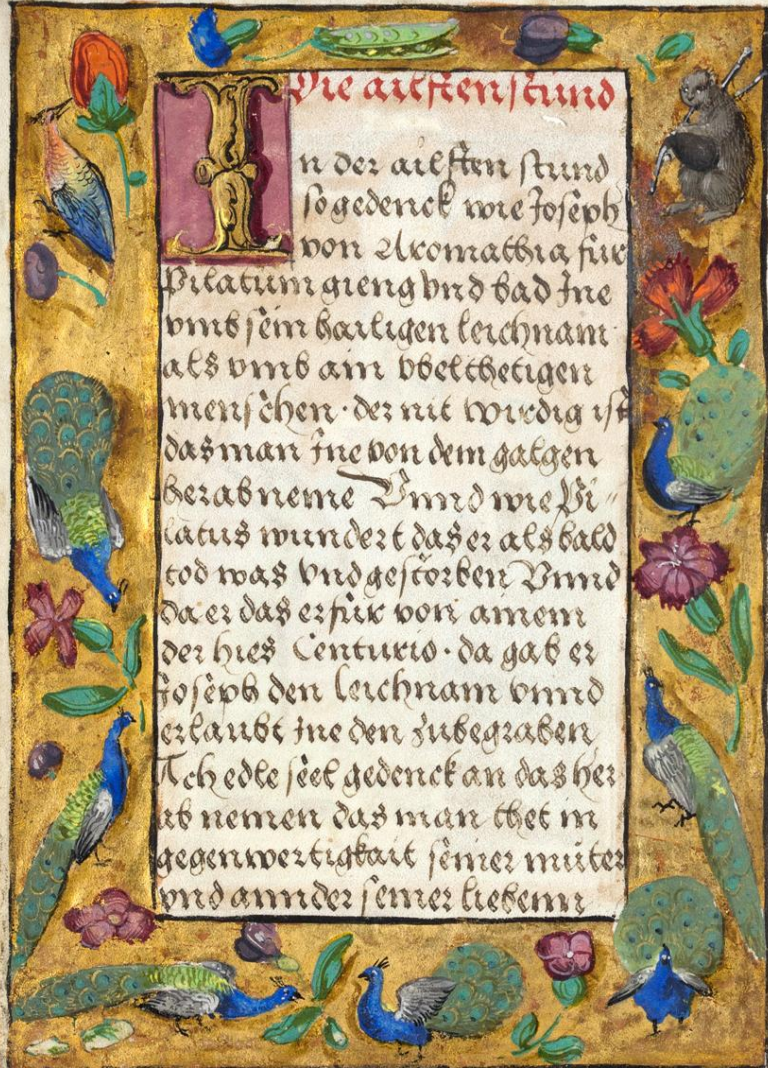 Die ailften stund
In der ailften stund
so gedenck wie Joseph
von Aromathia für
Pilatum gieng vnd bad Jne
vmb sein hailigen leichnam
als vmb ain vbelthetigen
menschen · der nit wirdig ist
das man Jne von dem galgen
herab neme Vnnd wie Pi„
latus wundert das er als bald
tod was vnd gestorben Vnnd
da er das erfur von ainem
der hies Centurio · da gab er
Joseph den leichnam vnnd
erlaubt Jne den zubegraben
Ach edle seel gedenck an das her
ab nemen das man thet in
gegenwertigkait seiner muter
vnd annder seiner liebenn